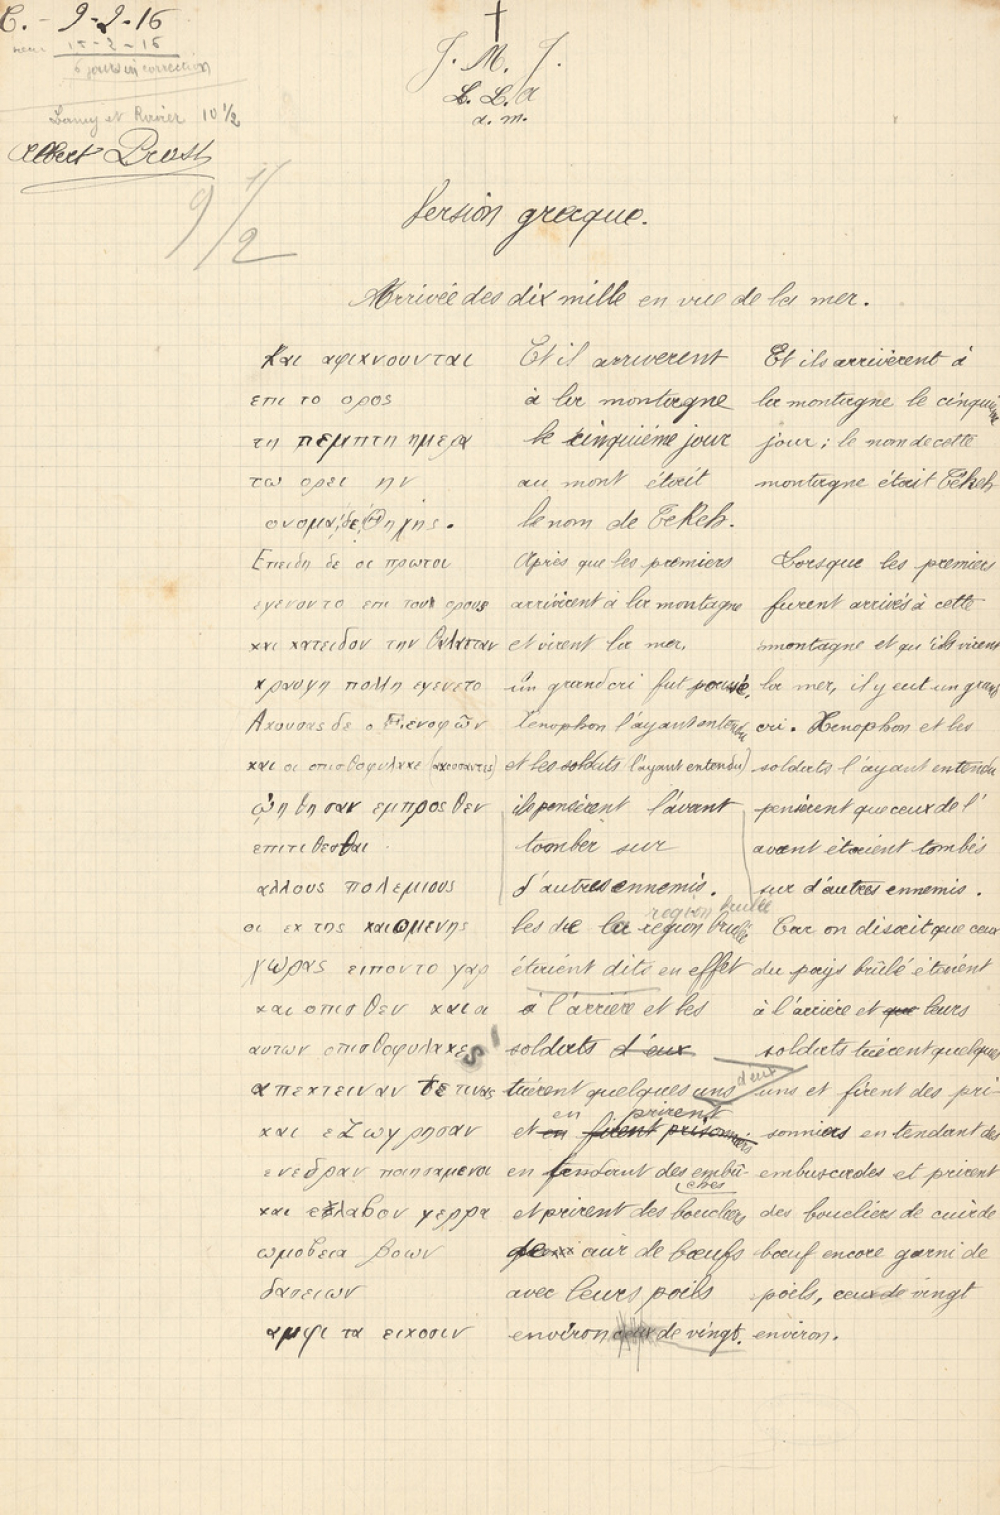 C. - 9-2-16
15-2-16
6 jours in correction
Lamy et Rivier 10 1/2
Albert Prost
J. M. J.
L. L. a
a. m.
9 1/2
Version grecque.
Arrivée des dix mille en vue de la mer.
Και αφιχνουνται Et il arrivèrent Et ils arrivèrent à
επι το ορος à la montagne la montagne le cinquième
τη πεμπτη ημερα le cinquième jour jour ; le nom de cette
τω ορει ην au mont était montagne était Tekeh
ονομα, δε, Θηχης. le nom de Tekeh.
Επειδη δε οι πρωτοι Après que les premiers Lorsque les premiers
εγενοντο επι του ορους arrivèrent à la montagne furent arrivés à cette
και κατειδον την θαλατταν et virent la mer, montagne et qu'ils virent
κραυγη πολλη εγενετο un grand cri fut poussé, la mer, il y eut un grand
Ακουσας δε ο Ξενοφῶν Xénophon l'ayant entendu cri. Xénophon et les
και οι οπισθοφυλακε (ακουσαντες) et les soldats (l'ayant entendu) soldats l'ayant entendu
ᾠηθησαν εμπροσθεν ils pensèrent l'avant pensèrent que ceux de l'
επιτιθεσθαι tomber sur avant étaient tombés
αλλους πολεμιους d'autres ennemis. sur d'autres ennemis.
region brulée
οι εκ της καιομενης les de la région brulée Car on disait que ceux
χωρας ειποντο γαρ étaient dits en effet du pays brûlé étaient
και οπισθεν και οι à l'arrière et les à l'arrière et que leurs
αυτων οπισθοφυλακες soldats d'eux soldats tuèrent quelques
απεκτειναν τε τινας tuèrent quelques uns d'eux uns et firent des pri-
en prirent
και εζωγρησαν et en firent prisonniers sonniers en tendant des
ενεδραν ποιησαμενοι en tendant des embû- embuscades et prirent
ches
και ελαβον γερρα et prirent des boucliers des boucliers de cuir de
ωμοβεια βοων cuir de bœufs bœuf encore garni de
δασειων avec leurs poils poils, ceux de vingt
αμφι τα εικοσιν environ ceux de vingt. environ.